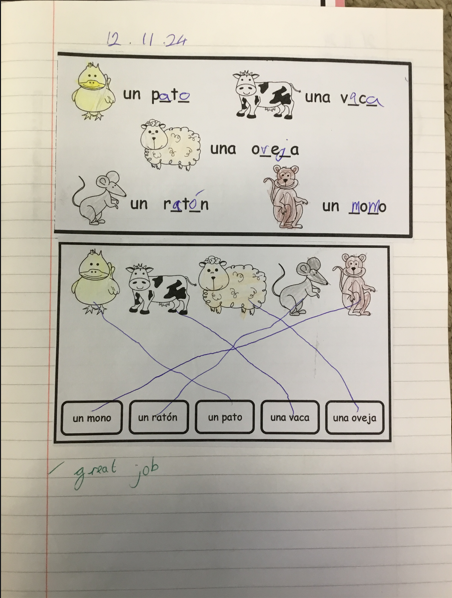 12.11.24
un pato una vaca
una oveja
un ratón un momo
un mono un ratón un pato una vaca una oveja
great job